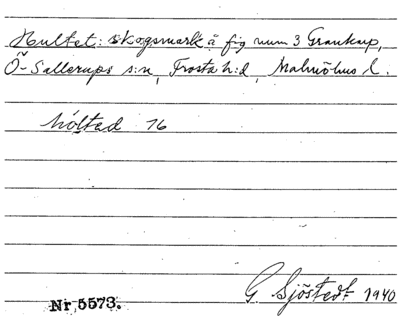 Hultet: skogsmark å fig num 3 Grankarp,
Ö-Sallerups s:n, Frosta h:d, Malmöhus l.
hóltad 76
Nr 5573. G. Sjöstedt 1940